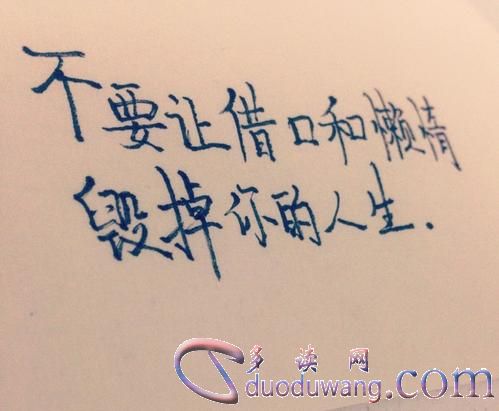 不要让借口和懒惰
毁掉你的人生.
多读网
duoduwang.com